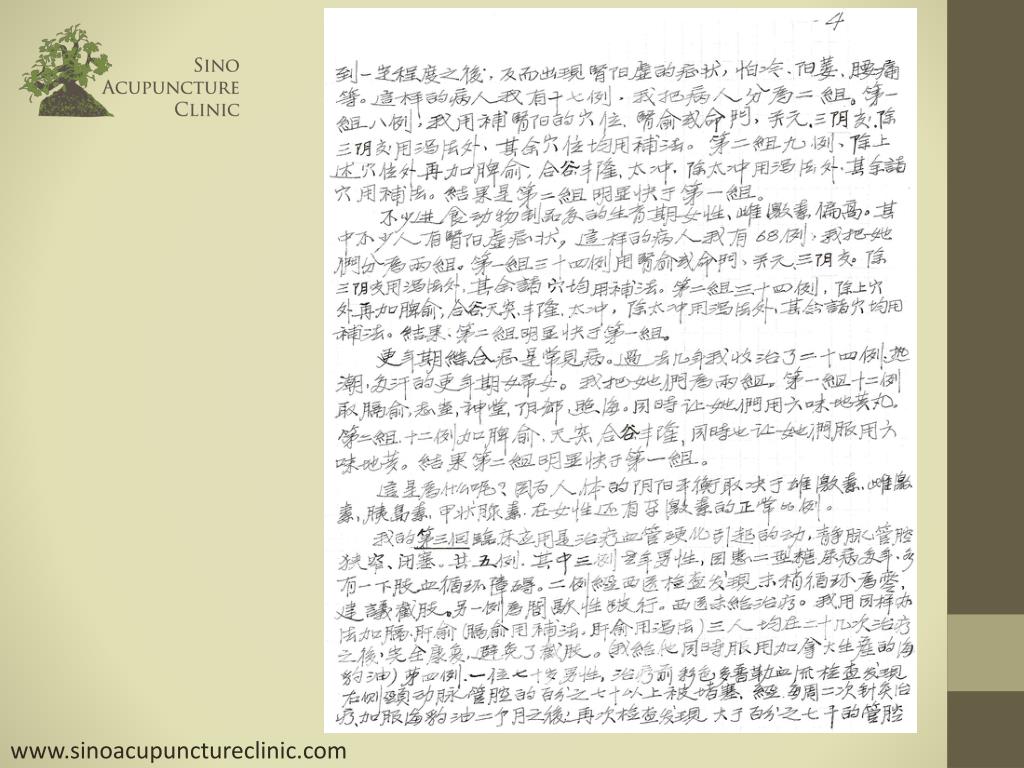 SINO
ACUPUNCTURE
CLINIC
- 4
到一定程度之後，反而出現腎阳虛的症状，怕冷、阳萎、腰痛
等。這样的病人我有十七例，我把病人分為二組。第一
組八例，我用補腎阳的穴位、腎俞或命門，关元、三阴交。除
三阴交用泻法外，其余穴位均用補法。第二組九例、除上
述穴位外再加脾俞，合谷丰隆，太冲，除太冲用泻法外，其余諸
穴用補法。結果是第二組明显快于第一組。
不少进食动物制品多的生育期女性，雌激素偏高。其
中不少人有腎阳虛症状，這样的病人我有68例，我把她
們分為两組。第一組三十四例用腎俞或命門，关元、三阴交。除
三阴交用泻法外，其余諸穴均用補法。第二組三十四例，除上穴
外再加脾俞，合谷天突，丰隆，太冲，除太冲用泻法外，其余諸穴均用
補法。結果，第二組明显快于第一組。
更年期綜合症是常見病。過去几年我收治了二十四例，热
潮，多汗的更年期妇女。我把她們為两組。第一組十二例
取膈俞，志室，神堂，阴郄，照海。同時让她們用六味地黄丸。
第二組，十二例加脾俞，天突，合谷丰隆，同時也让她們服用六
味地黄。結果第二組明显快于第一組。
這是為什么呢？因为人体的阴阳平衡取决于雄激素，雌激
素，胰島素，甲状腺素，在女性还有孕激素的正常比例。
我的第三個臨床应用是治疗血管硬化引起的动，静脉管腔
狹窄、闭塞。共五例，其中三例老年男性，因患二型糖尿病多年，各
有一下肢血循环障碍。二例經西医檢查发現，末梢循环為零，
建議截肢。另一例為間歇性跛行。西医未給治疗。我用同样办
法加膈，肝俞（膈俞用補法，肝俞用泻法）三人均在二十几次治疗
之後，完全康复，避免了截肢。（我給他同時服用加拿大生産的海
豹油）第四例，一位七十岁男性，治疗前彩色多普勒血流檢查发現
右侧頸动脉管腔的百分之七十以上被堵塞，經每周二次針灸治
疗，加服海豹油二个月之後，再次檢查发現大于百分之七十的管腔
www.sinoacupunctureclinic.com